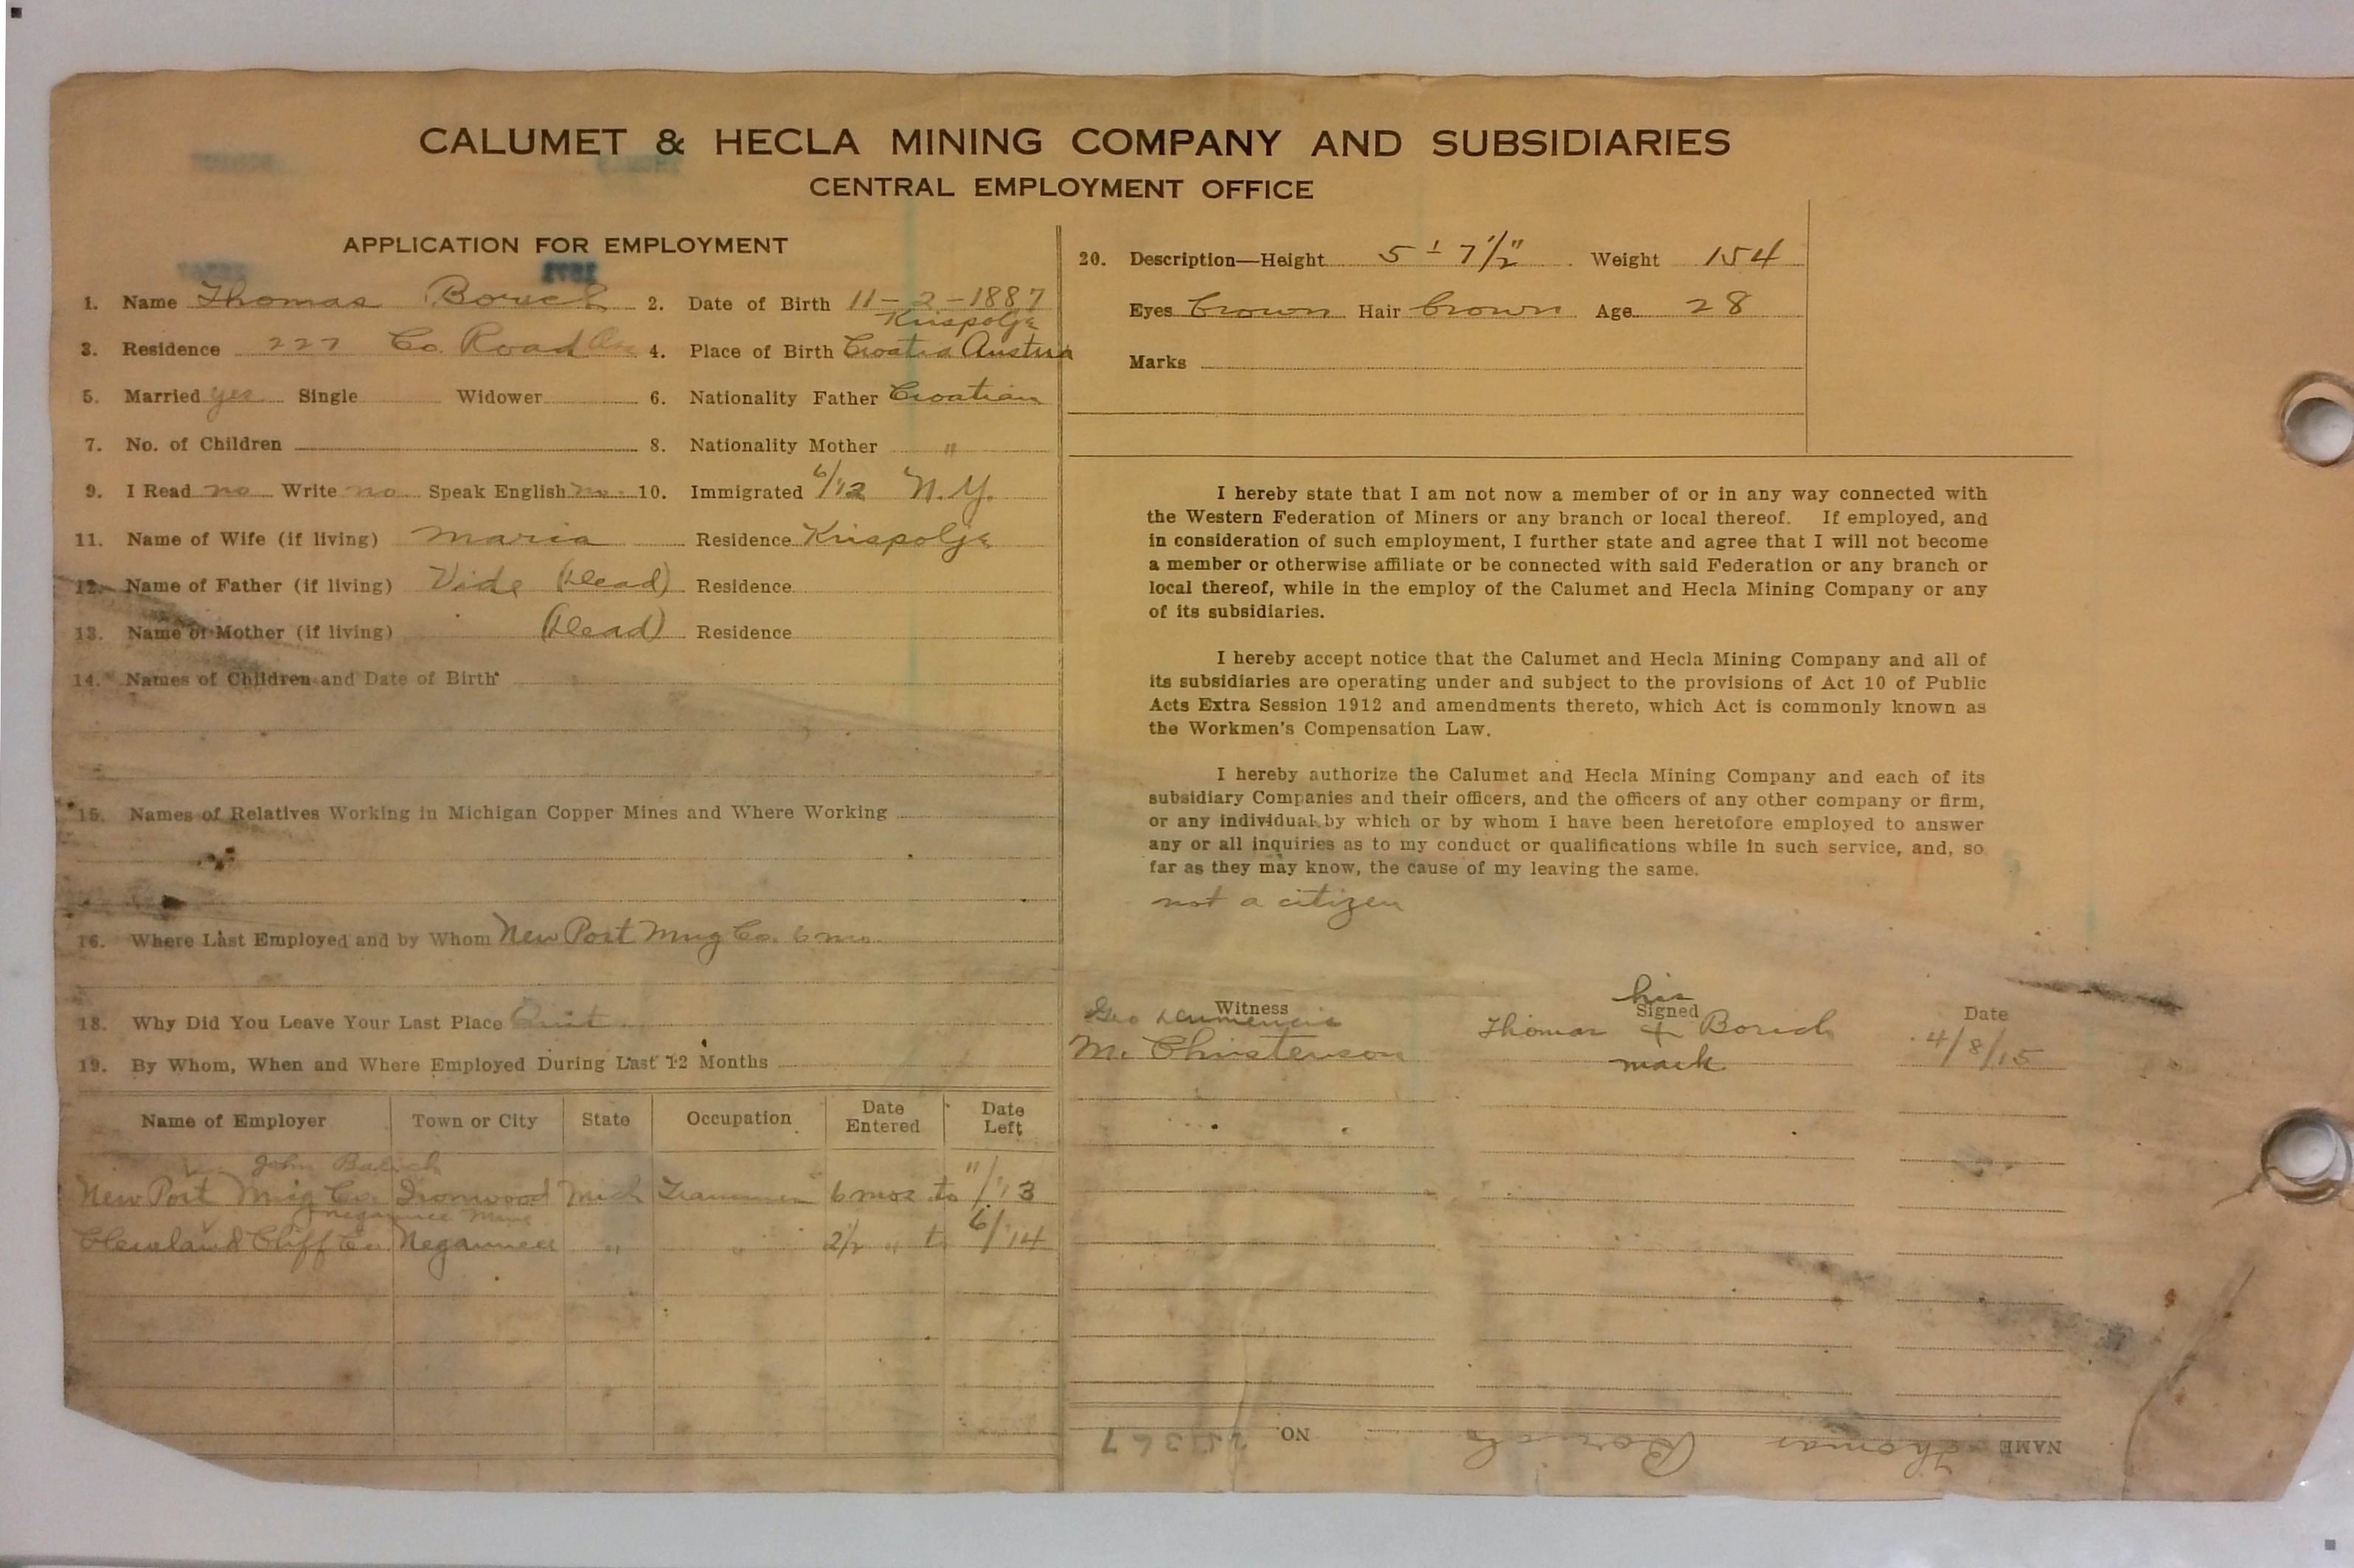 CALUMET & HECLA MINING COMPANY AND SUBSIDIARIES
CENTRAL EMPLOYMENT OFFICE
APPLICATION FOR EMPLOYMENT
1. Name Thomas Borich 2. Date of Birth 11-2-1887
Krispolje
3. Residence 227 Co. Road 4. Place of Birth Croatia Austria
5. Married yes Single Widower 6. Nationality Father Croatian
7. No. of Children 8. Nationality Mother "
9. I Read no Write no Speak English no 10. Immigrated 6/12 N.Y.
11. Name of Wife (if living) Maria Residence Krispolje
12. Name of Father (if living) Vide (Dead) Residence
13. Name of Mother (if living) (Dead) Residence
14. Names of Children and Date of Birth
15. Names of Relatives Working in Michigan Copper Mines and Where Working
16. Where Last Employed and by Whom New Port Mng Co. 6 mo.
18. Why Did You Leave Your Last Place Quit
19. By Whom, When and Where Employed During Last 12 Months
Name of Employer Town or City State Occupation Date Entered Date Left
John
New Port Mng Co. Ironwood Mich Trammer 6 mos to 11/13
Negaunee Mine
Cleveland Cliff Co. Negaunee " " 2 1/2 " to 6/14
20. Description—Height 5 - 7 1/2" Weight 154
Eyes brown Hair brown Age 28
Marks
I hereby state that I am not now a member of or in any way connected with
the Western Federation of Miners or any branch or local thereof. If employed, and
in consideration of such employment, I further state and agree that I will not become
a member or otherwise affiliate or be connected with said Federation or any branch or
local thereof, while in the employ of the Calumet and Hecla Mining Company or any
of its subsidiaries.
I hereby accept notice that the Calumet and Hecla Mining Company and all of
its subsidiaries are operating under and subject to the provisions of Act 10 of Public
Acts Extra Session 1912 and amendments thereto, which Act is commonly known as
the Workmen's Compensation Law.
I hereby authorize the Calumet and Hecla Mining Company and each of its
subsidiary Companies and their officers, and the officers of any other company or firm,
or any individual by which or by whom I have been heretofore employed to answer
any or all inquiries as to my conduct or qualifications while in such service, and, so
far as they may know, the cause of my leaving the same.
not a citizen
his
Witness Signed Date
Geo
Thomas + Borich
M. Christenson 4/8/15
mark
NAME Thomas Borich NO. 25367